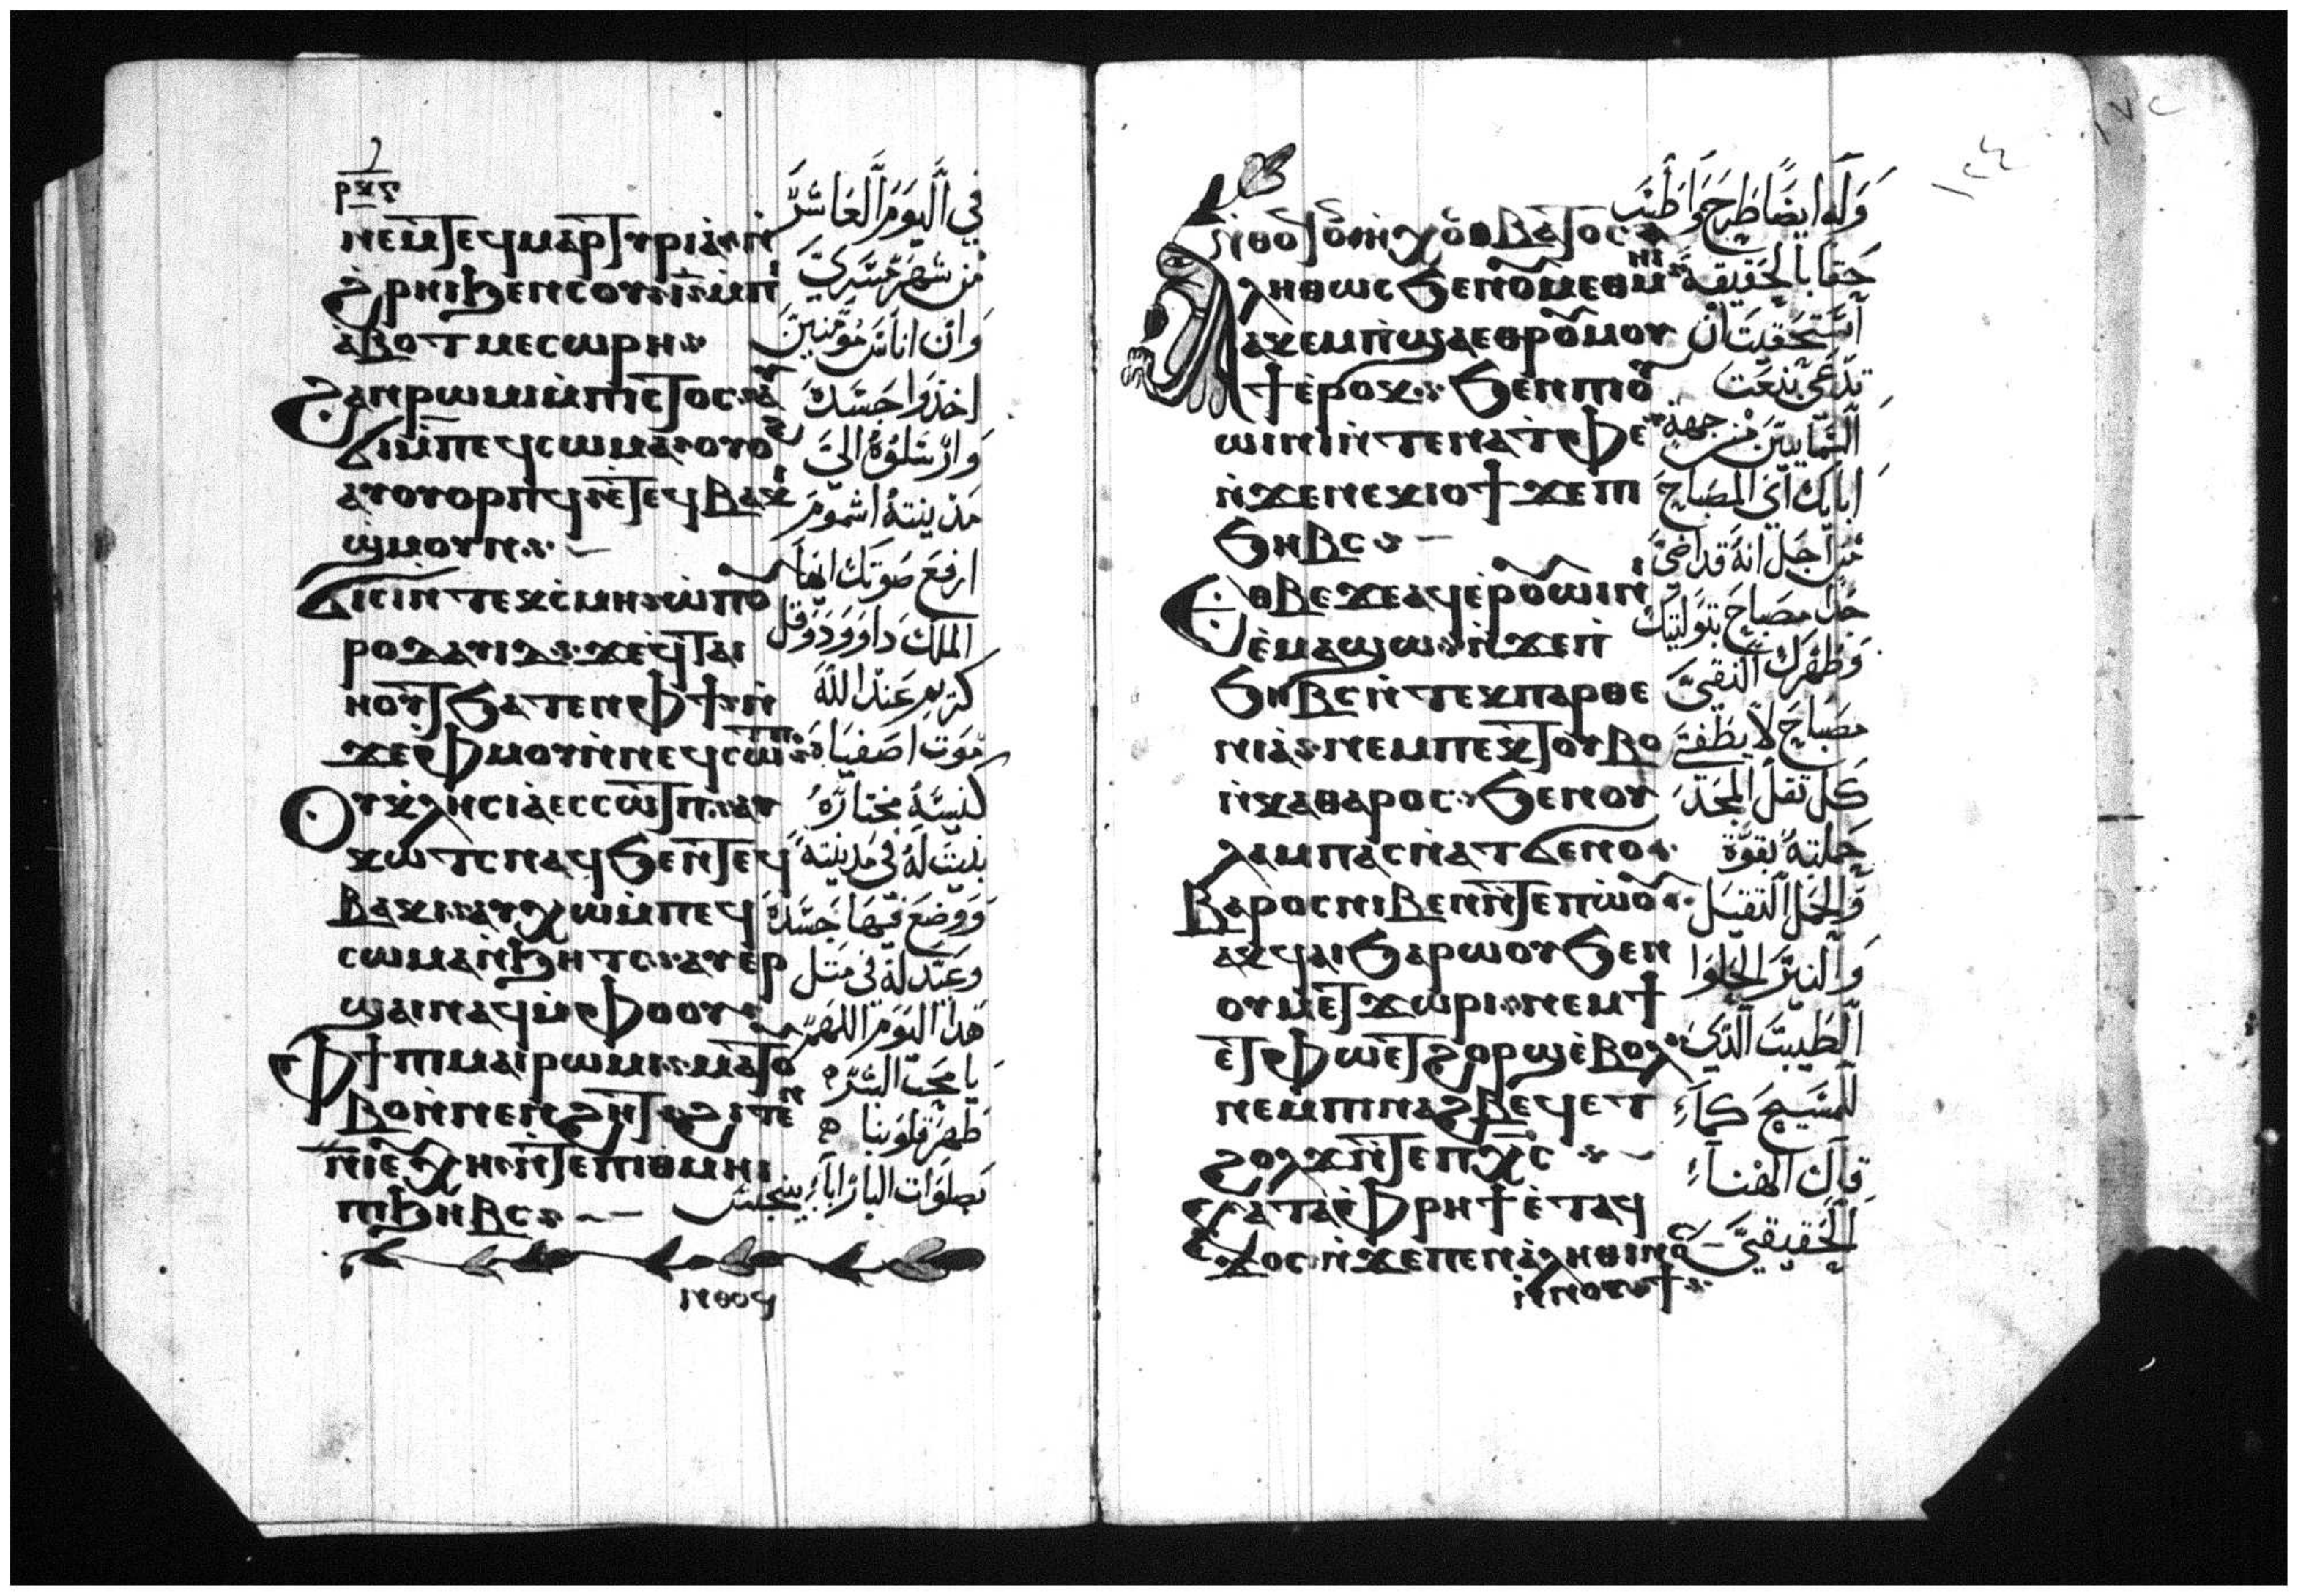 ⲣⲕⲋ
ⲛⲉⲙⲧⲉϥⲙⲁⲣⲧⲩⲣⲓⲁ
ϩⲣⲏⲓϧⲉⲛⲥⲟⲩ
ⲁⲃⲟⲧⲙⲉⲥⲱⲣⲏ
ϩⲁⲛⲣⲱⲙⲓⲙⲡⲓⲥⲧⲟⲥ
ϭⲓⲙⲡⲉϥⲥⲱⲙⲁ ⲟⲩⲟϩ
ⲁⲩⲟⲩⲟⲣⲡϥⲛⲧⲉϥⲃⲁⲕⲓ
ϣⲙⲟⲩⲛ
ϭⲓⲥⲓⲛⲧⲉⲕⲥⲙⲏ ⲱⲡⲟⲩ
ⲣⲟⲇⲁⲩⲓⲇ ϫⲉϥⲧⲁⲓ
ⲛⲟⲩⲧϧⲁⲧⲉⲛⲫϯ ⲛ
ϫⲉⲫⲙⲟⲩⲛⲛⲉϥⲥⲱⲧⲡ
ⲟⲩⲕⲗⲏⲥⲓⲁⲉⲥⲥⲱⲧⲡ ⲁⲩ
ⲕⲱⲧⲥⲛⲁϥϧⲉⲛⲧⲉϥ
ⲃⲁⲕⲓ ⲁⲩⲭⲱⲙⲡⲉϥ
ⲥⲱⲙⲁⲛϧⲏⲧⲥ ⲁⲩⲉⲣ
ϣⲁⲓⲛⲁϥⲙⲫⲟⲟⲩ
ⲫϯⲡⲓⲙⲁⲓⲣⲱⲙⲓ ⲙⲁⲧⲟⲩ
ⲃⲟⲛⲛⲉⲛϩⲏⲧ ϩⲓⲧⲉⲛ
ⲛⲓⲉⲩⲭⲏ ⲛⲧⲉⲡⲓⲑⲙⲏⲓ
ⲡⲓϧⲏⲃⲥ
ⲛⲑⲟϥ
في اليوم العاشر
من شهر مسري
وان اناس مؤمنين
اخذوا جسده
وارسلوه الي
مدينته اشموم
ارفع صوتك ايها
الملك داوود وقل
كريم عند الله
موت اصفياه
كنيسه مختاره
بنيت له في مدينته
ووضع فيها جسده
وعيد له في مثل
هذا اليوم
يا محب البشر
طهر قلوبنا
بصلوات البار ابا بيجبس
ⲛⲑⲟϥ
ⲗⲏⲑⲱⲥϧⲉⲛⲟⲩⲙⲉⲑⲙⲏⲓ
ⲁⲕⲉⲙⲡϣⲁⲉⲑⲣⲟⲩⲙⲟⲩ
ϯⲉⲣⲟⲕ ϧⲉⲛⲡⲓⲟⲩ
ⲱⲓⲛⲓⲛⲧⲉⲛⲁⲧⲫⲉ
ⲛϫⲉⲛⲉⲕⲓⲟϯ ϫⲉⲡⲓ
ϧⲏⲃⲥ
ⲉⲑⲃⲉϫⲉⲁϥⲉⲣⲟⲩⲱⲓⲛⲓ
ⲉⲙⲁϣⲱ ⲛϫⲉⲡ
ϧⲏⲃⲥⲛⲧⲉⲕⲡⲁⲣⲑⲉ
ⲛⲓⲁ ⲛⲉⲙⲡⲉⲕⲧⲟⲩⲃⲟ
ⲛⲕⲁⲑⲁⲣⲟⲥ ϧⲉⲛⲟⲩ
ⲗⲁⲙⲡⲁⲥⲛⲁⲧϭⲉⲛⲟ
ⲃⲁⲣⲟⲥⲛⲓⲃⲉⲛⲛⲧⲉⲡⲱⲟⲩ
ⲁⲕϥⲁⲓϧⲁⲣⲱⲟⲩϧⲉⲛ
ⲟⲩⲙⲉⲧϫⲱⲣⲓ ⲛⲉⲙϯ
ⲉⲧⲫⲱ ⲉⲧϩⲟⲣϣⲉⲃⲟⲗ
ⲛⲉⲙⲡⲓⲛⲁϩⲃⲉϥⲉⲧ
ϩⲟⲗϫⲛⲧⲉⲡⲭⲥ
ⲕⲁⲧⲁⲫⲣⲏϯⲉⲧⲁϥ
ϫⲟⲥ ⲛϫⲉⲡⲉⲛⲁⲗⲏⲑⲓⲛⲟⲥ
ⲛⲛⲟⲩϯ
وله ايضا طرح واطس
حقا بالحقيقه
استحقيت ان
تدعي بنعت
السمايين من جهة
ابايك اي المصباح
من اجل انه قد اضي
جدا مصباح بتوليتك
وطهرك النقي
مصباح لا يطفي
كل ثقل المجد
حملته بقوة
والحمل الثقيل
والنير الحلوا
الذي
للمسيح كما
قال الهنا
الحقيقي
١٢٤
١٧٢